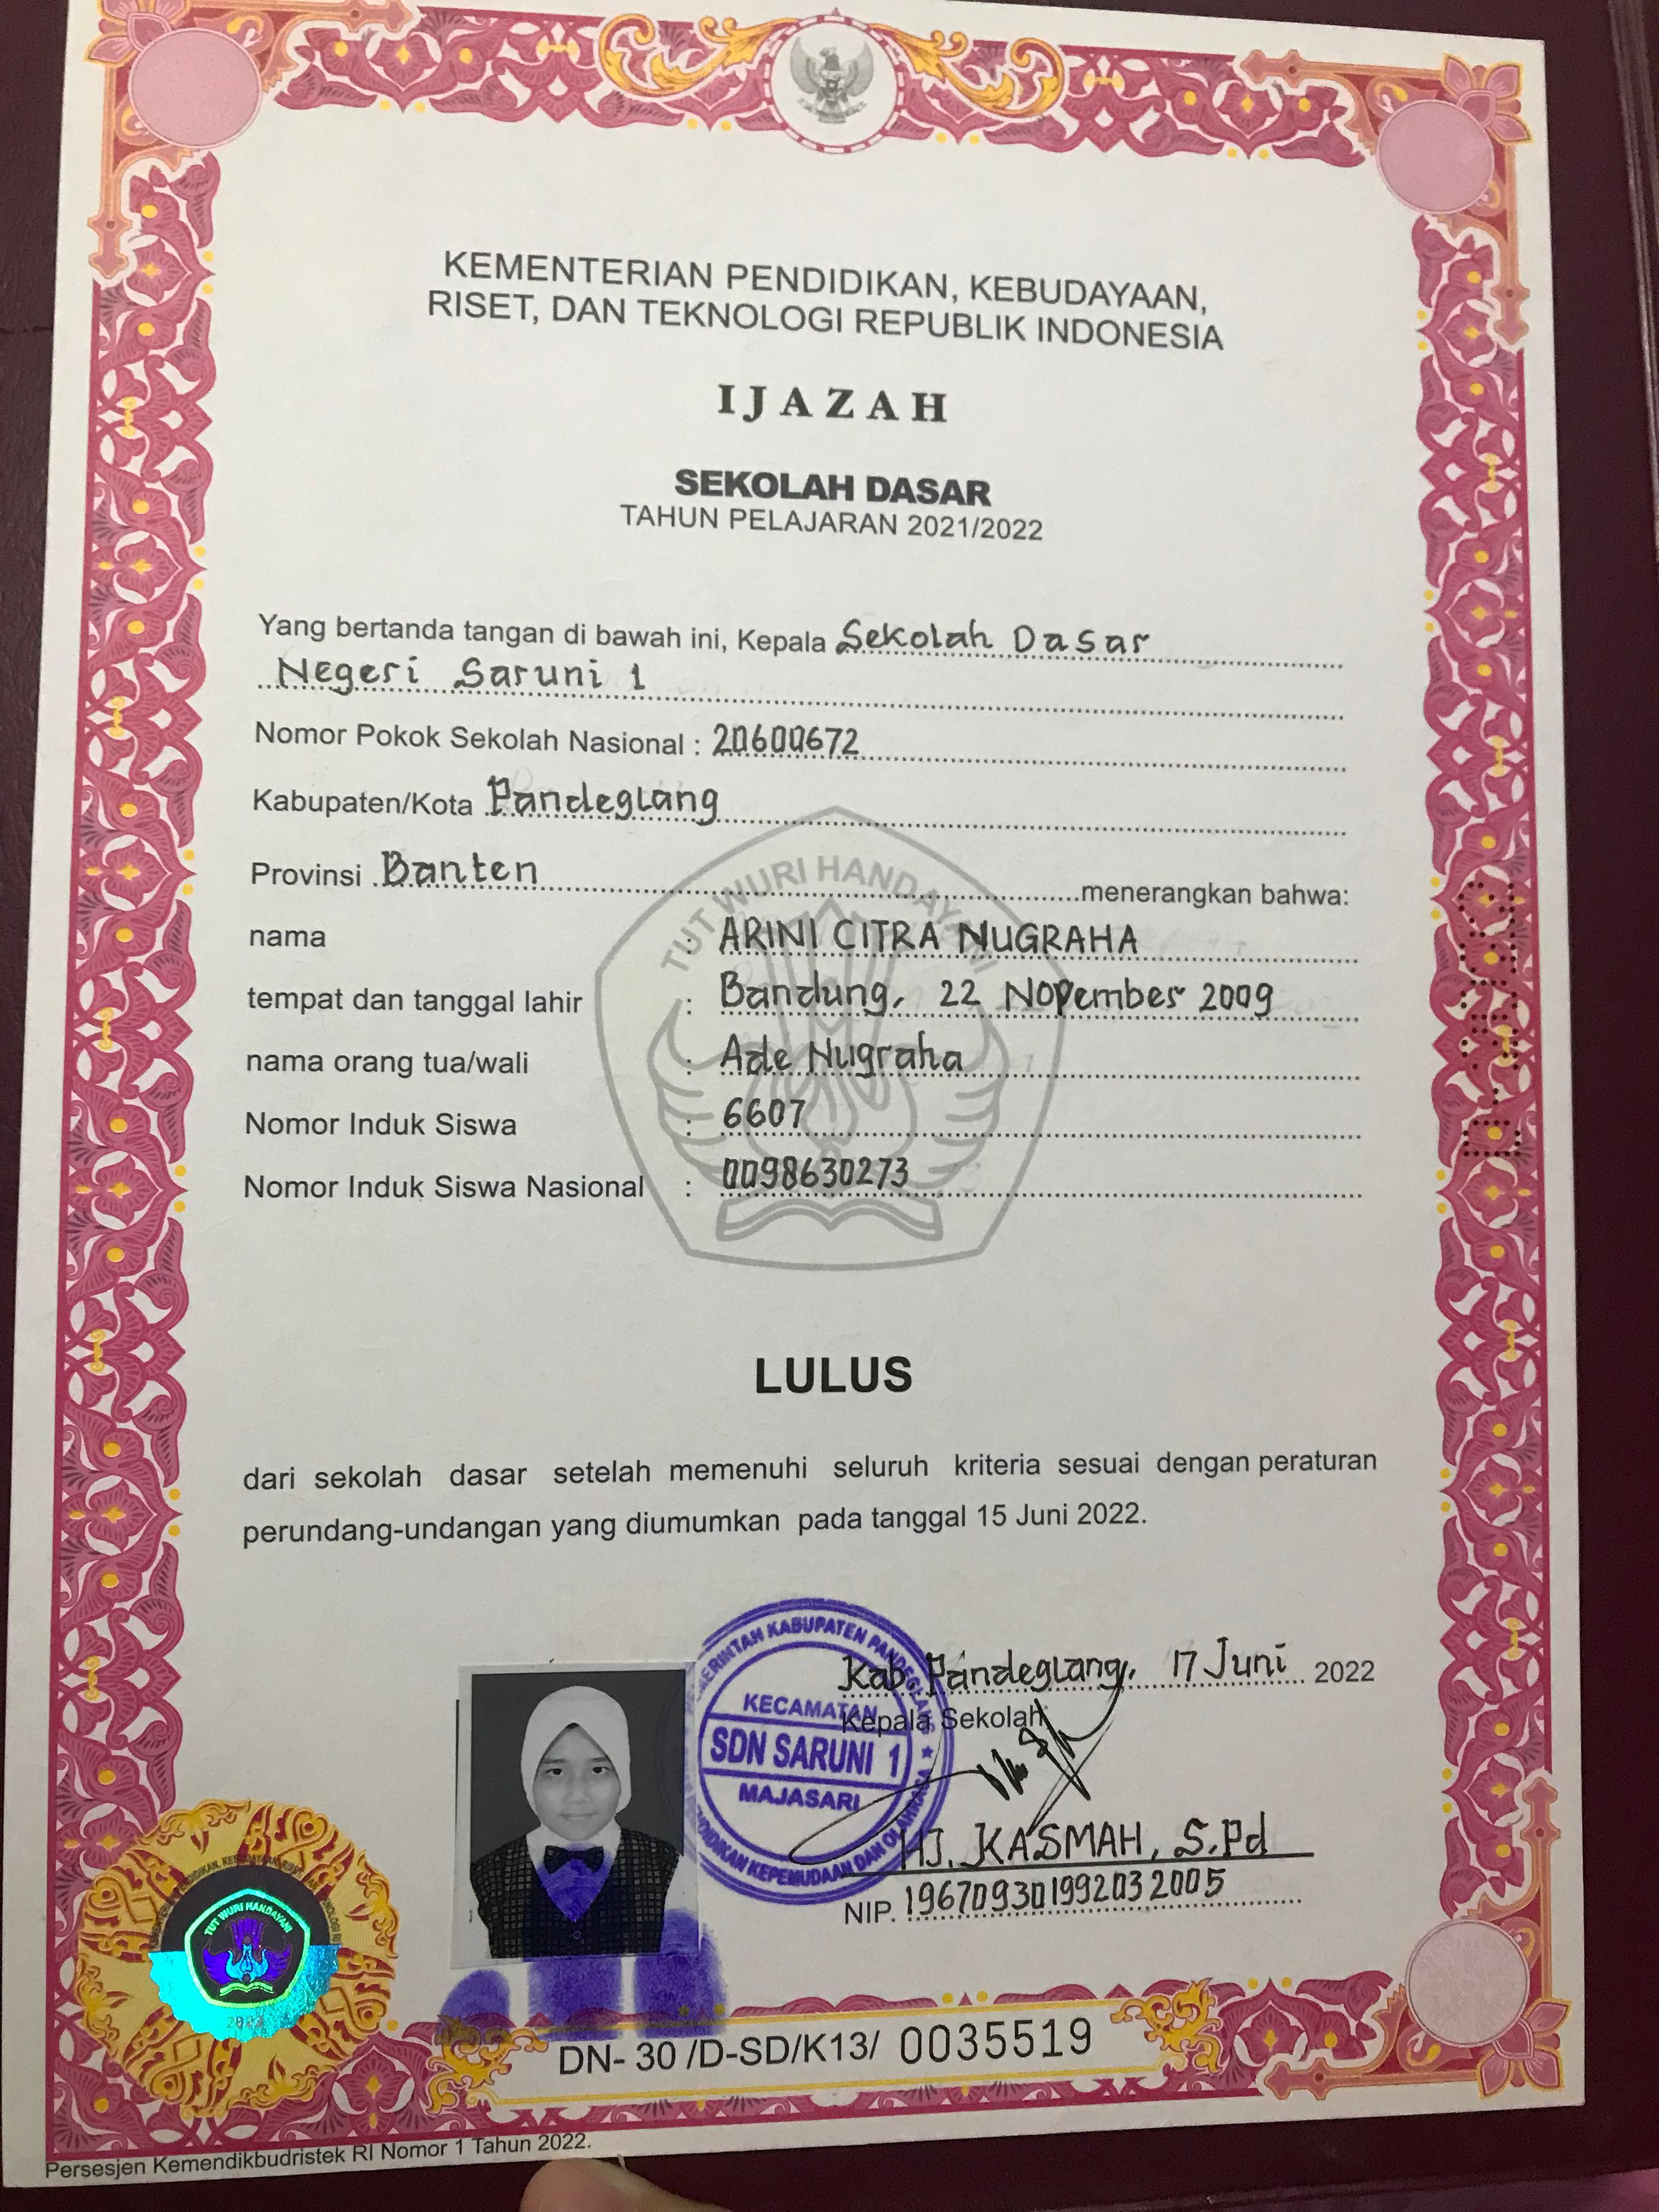 KEMENTERIAN PENDIDIKAN, KEBUDAYAAN,
RISET, DAN TEKNOLOGI REPUBLIK INDONESIA
IJAZAH
SEKOLAH DASAR
TAHUN PELAJARAN 2021/2022
Yang bertanda tangan di bawah ini, Kepala Sekolah Dasar
Negeri Saruni 1
Nomor Pokok Sekolah Nasional : 20600672
Kabupaten/Kota Pandeglang
Provinsi Banten menerangkan bahwa:
nama : ARINI CITRA NUGRAHA
tempat dan tanggal lahir : Bandung, 22 Nopember 2009
nama orang tua/wali : Ade Nugraha
Nomor Induk Siswa : 6607
Nomor Induk Siswa Nasional : 0098630273
TUT WURI HANDAYANI
LULUS
dari sekolah dasar setelah memenuhi seluruh kriteria sesuai dengan peraturan
perundang-undangan yang diumumkan pada tanggal 15 Juni 2022.
Kab. Pandeglang, 17 Juni 2022
Kepala Sekolah
KABUPATEN PANDEGLANG
KECAMATAN
SDN SARUNI 1
MAJASARI
KEPEMUDAAN DAN OLAHRAGA
HJ. KASMAH, S.Pd
NIP. 196709301992032005
TUT WURI HANDAYANI
2022
DN- 30 /D-SD/K13/ 0035519
Persesjen Kemendikbudristek RI Nomor 1 Tahun 2022.